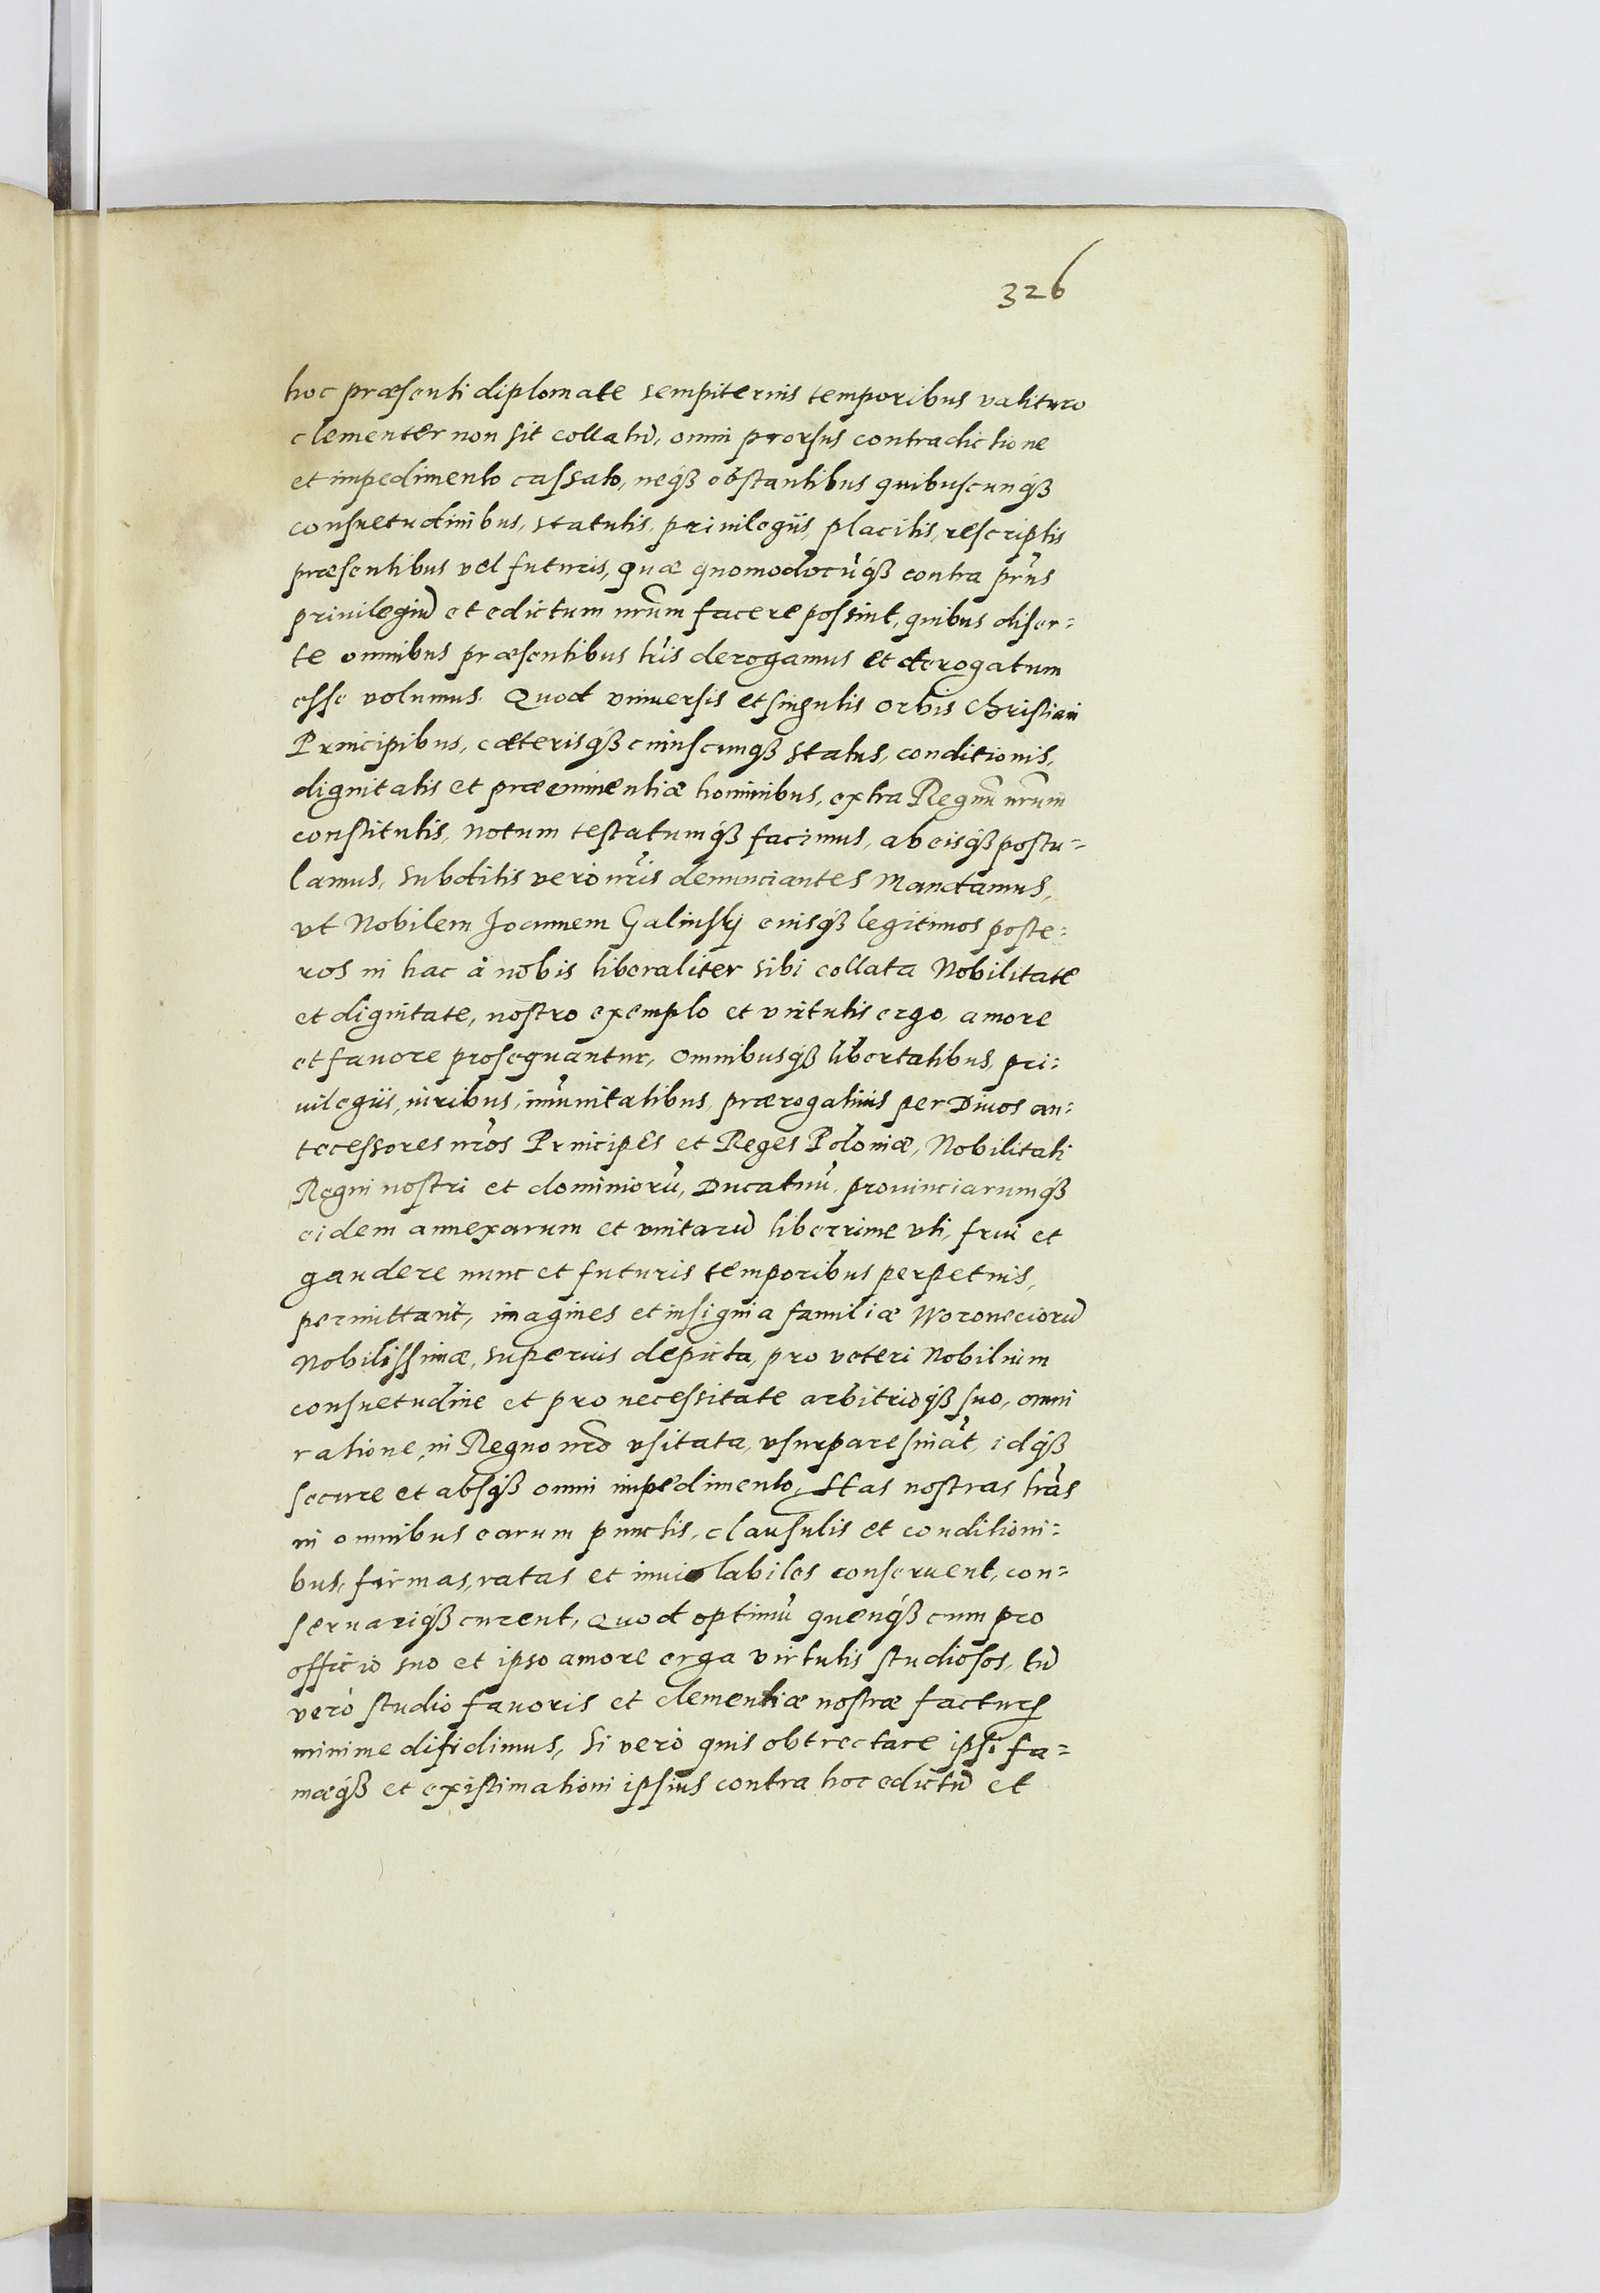 326
hoc præsenti diplomate sempiternis temporibus valituro
clementer non sit collatũ, omni prorsus contradictione
et impedimento cassato, neqꝫ obstantibus quibuscunqꝫ
consuetudinibus, statutis, priuilegiis, placitis, rescriptis
præsentibus vel futuris, quæ quomodocũqꝫ contra prñs
priuilegiũ et edictum nrũm facere possint, quibus diser=
te omnibus præsentibus lr̃is derogamus et derogatum
esse volumus. Quod vniuersis et singulis orbis Christiani
Principibus, cæterisqꝫ cuiuscunqꝫ status, conditionis,
dignitatis et præeminentiæ hominibus, extra Regnũ nrũm
constitutis, notum testatumqꝫ facimus, ab eisqꝫ postu=
lamus, subditis vero nr̃is denunciantes Mandamus,
vt Nobilem Joannem Galinskj eiusqꝫ legitimos poste=
ros in hac à nobis liberaliter sibi collata Nobilitate
et dignitate, nostro exemplo et virtutis ergo, amore
et fauore prosequantur, omnibusqꝫ libertatibus, pri=
uilegiis, iuribus, im̃unitatibus, prærogatiuis per Diuos an=
tecessores nr̃os Principes et Reges Poloniæ, Nobilitati
Regni nostri et dominiorũ, Ducatuũ, prouinciarumqꝫ
eidem annexarum et vnitarũ liberrime vti, frui et
gaudere nunc et futuris temporibus perpetuis,
permittant, imagines et insignia familiæ Woroneciorũ
Nobilissimæ, superius depicta, pro veteri Nobilium
consuetudine et pro necessitate arbitrioqꝫ suo, omni
ratione, in Regno nr̃o vsitata, vsurpare sinãt, idqꝫ
secure et absqꝫ omni impedimento, Has nostras lr̃as
in omnibus earum punctis, clausulis et conditioni=
bus, firmas, ratas et inuiolabiles conseruent, con=
seruariqꝫ curent, Quod optimũ quenqꝫ cum pro
officio suo et ipso amore erga virtutis studiosos, tũ
verò studio fauoris et clementiæ nostræ facturũ
minime difidimus, Si verò quis obtrectare ipsi fa=
mæqꝫ et existimationi ipsius contra hoc edictũ et